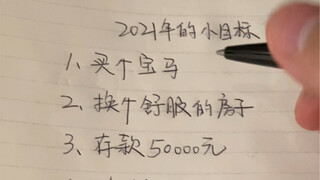 2021年的小目标
1、买个宝马
2、换个舒服的房子
3、存款50000元